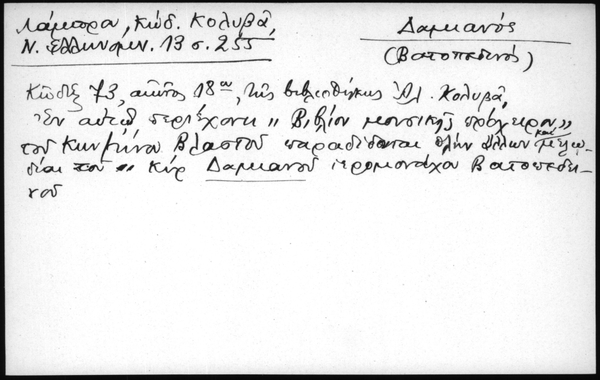 Λάμπρου, Κώδ. Κολυβᾶ,
Ν. Ἑλληνομν. 13 σ. 255
Δαμιανός
(Βατοπεδινός)
Κῶδιξ 73, αἰῶνος 18ου, τῆς βιβλιοθήκης Ἀλ. Κολυβᾶ,
Ἐν αὐτῷ περιέχοντι "Βιβλίον μουσικῆς πρόχειρον"
τοῦ Βλαστοῦ παραδίδονται πλὴν ἄλλων καὶ μελῳ-
δίαι τοῦ " Κὺρ Δαμιανοῦ ἱερομονάχου Βατοπεδι-
νοῦ